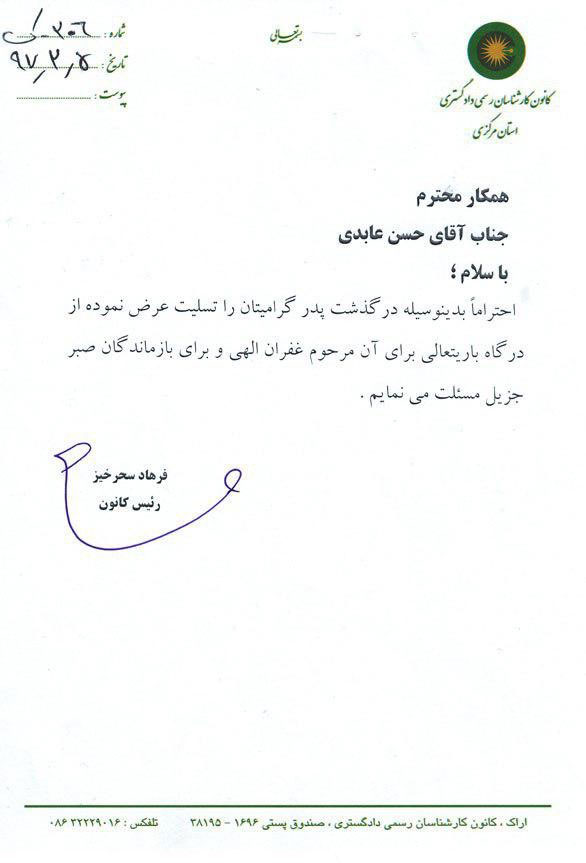 بسمه تعالی
کانون کارشناسان رسمی دادگستری
استان مرکزی
شماره : ۳۰۶
تاریخ : ۹۷٫۳٫۵
پیوست :
همکار محترم
جناب آقای حسن عابدی
با سلام ؛
احتراماً بدینوسیله درگذشت پدر گرامیتان را تسلیت عرض نموده از
درگاه باریتعالی برای آن مرحوم غفران الهی و برای بازماندگان صبر
جزیل مسئلت می نمایم .
فرهاد سحرخیز
رئیس کانون
اراک ، کانون کارشناسان رسمی دادگستری ، صندوق پستی ۱۶۹۶ - ۳۸۱۹۵ تلفکس : ۳۲۲۲۹۰۱۶ ۰۸۶